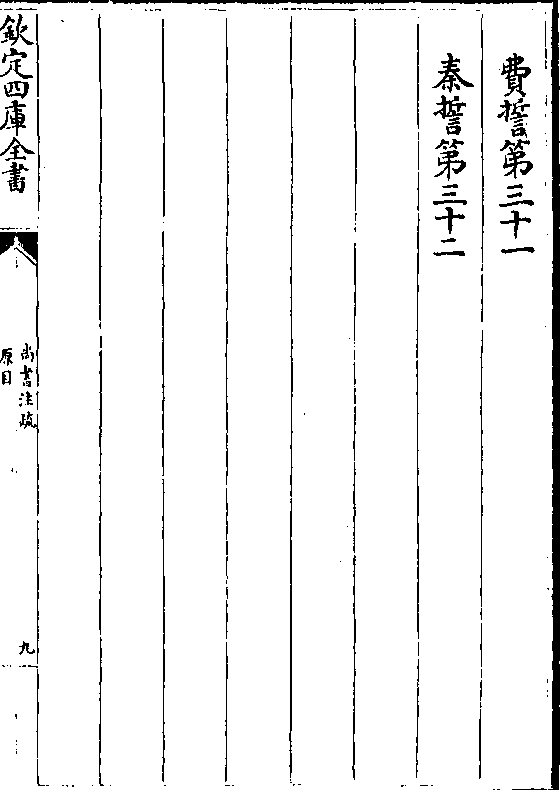 費誓第三十一
秦誓第三十二
欽定四庫全書
尚書注疏
原目
九